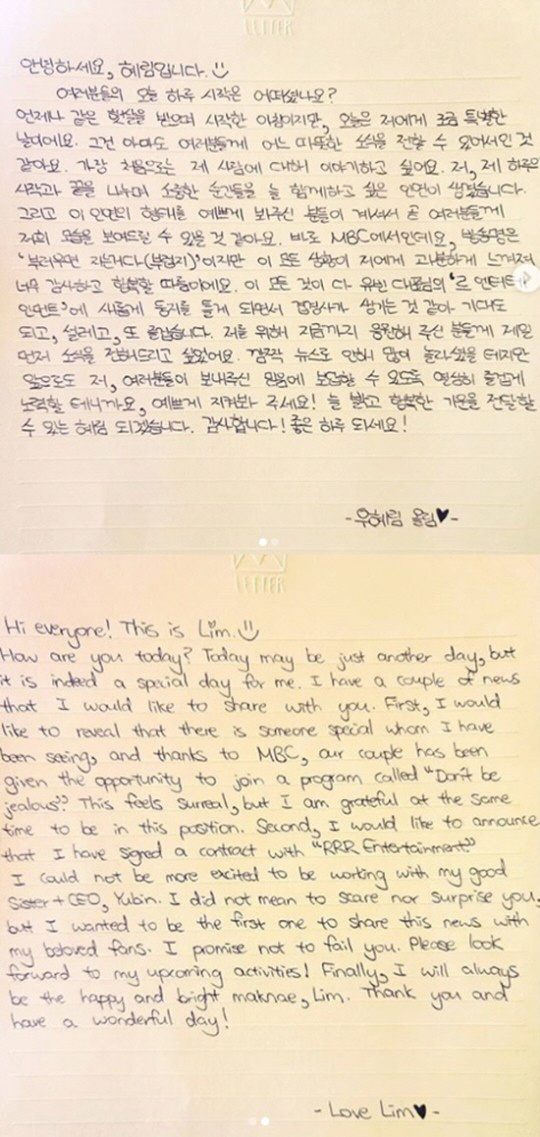 LETTER
안녕하세요, 혜림입니다.
여러분들의 오늘 하루 시작은 어떠셨나요?
언제나 같은 햇살을 받으며 시작한 아침이지만, 오늘은 저에게 조금 특별한
날이에요. 그건 아마도 여러분들께 어느 따뜻한 소식을 전할 수 있어서인 것
같아요. 가장 처음으로는 제 사람에 대해 이야기하고 싶어요. 저, 제 하루의
시작과 끝을 나누며 소중한 순간들을 늘 함께하고 싶은 인연이 생겼습니다.
그리고 이 인연의 형태를 예쁘게 봐주신 분들이 계셔서 곧 여러분들께
저희 모습을 보여드릴 수 있을 것 같아요. 바로 MBC에서인데요, 방송명은
'부러우면 지는거다(부럼지)'이지만 이 모든 상황이 저에게 과분하게 느껴져
너무 감사하고 행복할 따름이에요. 이 모든 것이 다 유빈 대표님의 '르 엔터테
인먼트'에 새롭게 둥지를 틀게 되면서 겹경사가 생기는 것 같아 기대도
되고, 설레고, 또 즐겁습니다. 저를 위해 지금까지 응원해 주신 분들께 제일
먼저 소식을 전해드리고 싶었어요. 깜짝 뉴스로 인해 많이 놀라셨을 테지만
앞으로도 저, 여러분들이 보내주신 믿음에 보답할 수 있도록 열심히 즐겁게
노력할 테니까요, 예쁘게 지켜봐 주세요! 늘 밝고 행복한 기운을 전달할
수 있는 혜림 되겠습니다. 감사합니다! 좋은 하루 되세요!
-우혜림 올림♥-
LETTER
Hi everyone! This is Lim.
How are you today? Today may be just another day, but
it is indeed a special day for me. I have a couple of news
that I would like to share with you. First, I would
like to reveal that there is someone special whom I have
been seeing, and thanks to MBC, our couple has been
given the opportunity to join a program called "Don't be
jealous". This feels surreal, but I am grateful at the same
time to be in this position. Second, I would like to announce
that I have signed a contract with "RRR Entertainment"
I could not be more excited to be working with my good
Sister + CEO, Yubin. I did not mean to scare nor surprise you,
but I wanted to be the first one to share this news with
my beloved fans. I promise not to fail you. Please look
forward to my upcoming activities! Finally, I will always
be the happy and bright maknae, Lim. Thank you and
have a wonderful day!
- Love Lim♥-